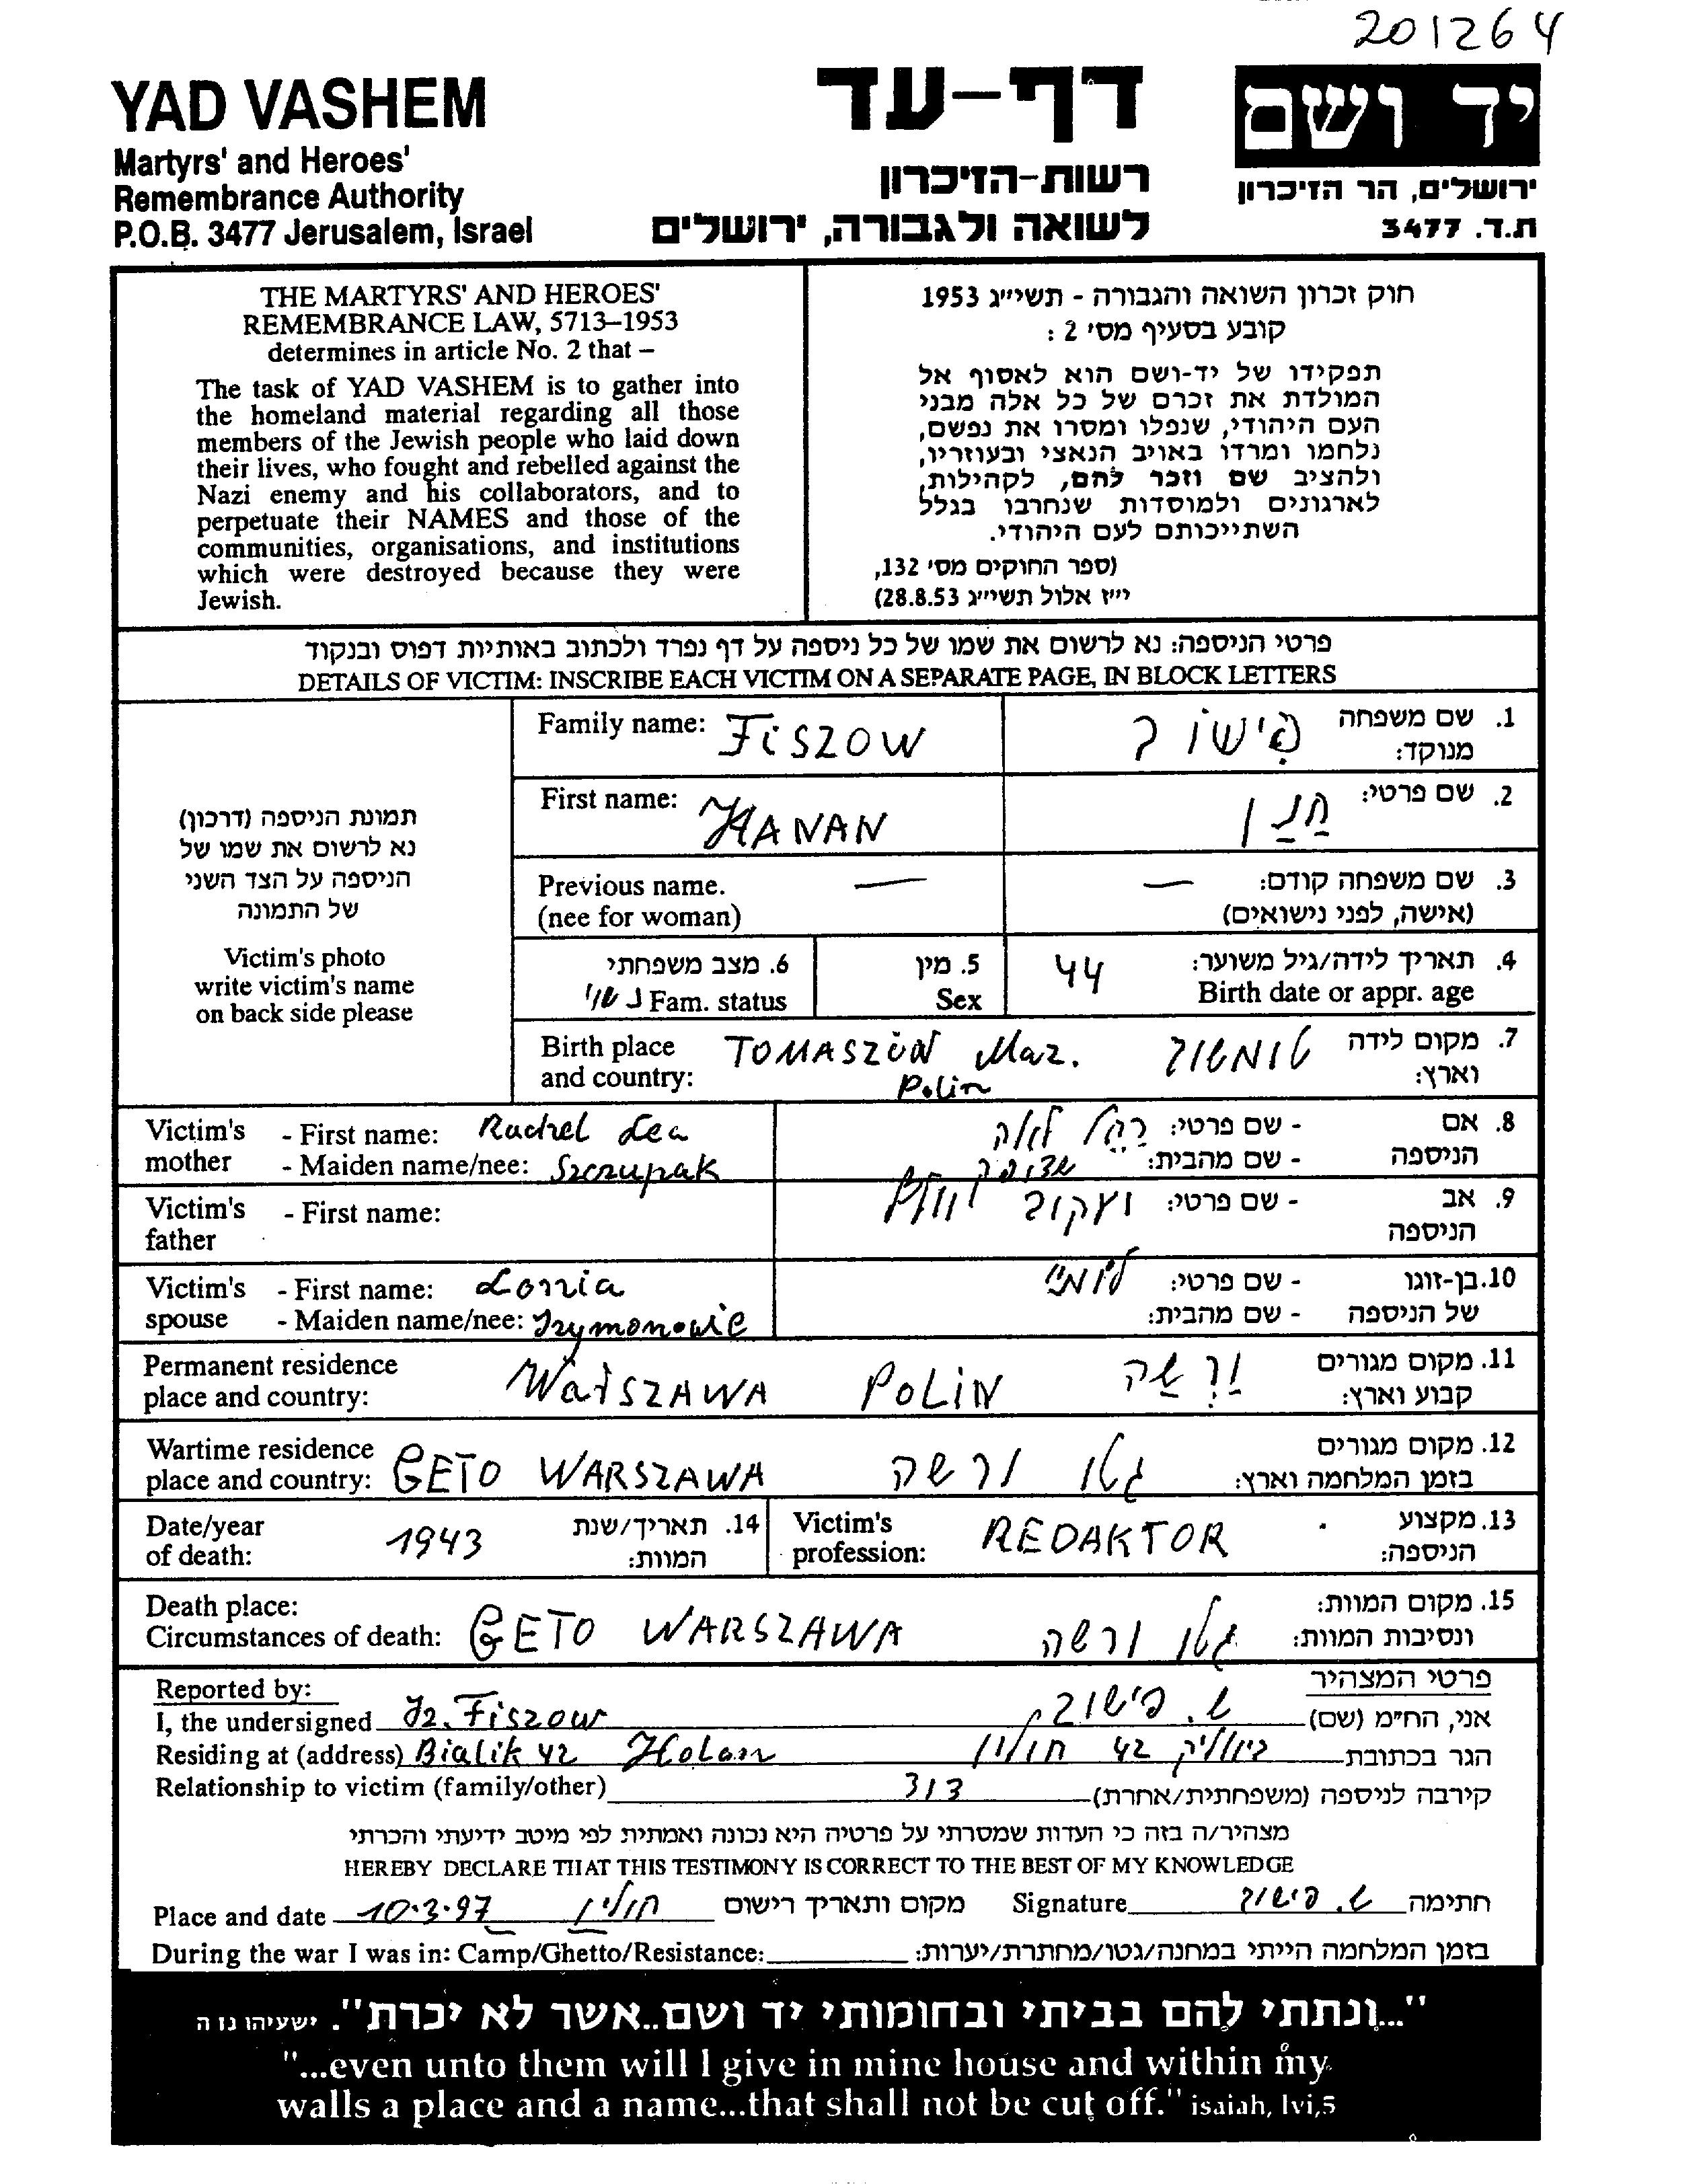 201264
YAD VASHEM
Martyrs' and Heroes'
Remembrance Authority
P.O.B. 3477 Jerusalem, Israel
דף-עד
רשות-הזיכרון
לשואה ולגבורה, ירושלים
יד ושם
ירושלים, הר הזיכרון
ת.ד. 3477
THE MARTYRS' AND HEROES'
REMEMBRANCE LAW, 5713–1953
determines in article No. 2 that –
The task of YAD VASHEM is to gather into
the homeland material regarding all those
members of the Jewish people who laid down
their lives, who fought and rebelled against the
Nazi enemy and his collaborators, and to
perpetuate their NAMES and those of the
communities, organisations, and institutions
which were destroyed because they were
Jewish.
חוק זכרון השואה והגבורה - תשי״ג 1953
קובע בסעיף מס׳ 2 :
תפקידו של יד-ושם הוא לאסוף אל
המולדת את זכרם של כל אלה מבני
העם היהודי, שנפלו ומסרו את נפשם,
נלחמו ומרדו באויב הנאצי ובעוזריו,
ולהציב שם וזכר להם, לקהילות,
לארגונים ולמוסדות שנחרבו בגלל
השתייכותם לעם היהודי.
(ספר החוקים מס׳ 132,
י״ז אלול תשי״ג 28.8.53)
פרטי הניספה: נא לרשום את שמו של כל ניספה על דף נפרד ולכתוב באותיות דפוס ובנקוד
DETAILS OF VICTIM: INSCRIBE EACH VICTIM ON A SEPARATE PAGE, IN BLOCK LETTERS
תמונת הניספה (דרכון)
נא לרשום את שמו של
הניספה על הצד השני
של התמונה
Victim's photo
write victim's name
on back side please
Family name: FiSZOW
1. שם משפחה מנוקד: פישוב
First name: HANAN
2. שם פרטי: חנן
Previous name. —
(nee for woman)
3. שם משפחה קודם: —
(אישה, לפני נישואים)
4. תאריך לידה/גיל משוער: 44
Birth date or appr. age
5. מין
Sex
6. מצב משפחתי
Fam. status נשוי
Birth place and country: TOMASZÓW Maz. Polin
7. מקום לידה וארץ: טומשוב
Victim's mother - First name: Rachel Lea
- Maiden name/nee: Szczupak
8. אם הניספה - שם פרטי: רחל לאה
- שם מהבית:
Victim's father - First name:
9. אב הניספה - שם פרטי: יעקב
Victim's spouse - First name: Lonia
- Maiden name/nee:
10. בן-זוגו של הניספה - שם פרטי:
- שם מהבית:
Permanent residence place and country: WaRSZAWA POLiN
11. מקום מגורים קבוע וארץ: ורשה
Wartime residence place and country: GETO WARSZAWA
12. מקום מגורים בזמן המלחמה וארץ: גטו ורשה
Date/year of death: 1943
14. תאריך/שנת המוות:
Victim's profession: REDAKTOR
13. מקצוע הניספה:
Death place:
Circumstances of death: GETO WARSZAWA
15. מקום המוות:
ונסיבות המוות: גטו ורשה
Reported by:
פרטי המצהיר
I, the undersigned Sz. Fiszow
אני, הח״מ (שם) ש. פישוב
Residing at (address) Bialik 42 Holon
הגר בכתובת ביאליק 42 חולון
Relationship to victim (family/other)
קירבה לניספה (משפחתית/אחרת) דוד
מצהיר/ה בזה כי העדות שמסרתי על פרטיה היא נכונה ואמתית לפי מיטב ידיעתי והכרתי
HEREBY DECLARE THAT THIS TESTIMONY IS CORRECT TO THE BEST OF MY KNOWLEDGE
Place and date 10.3.97 חולון מקום ותאריך רישום
Signature ש. פישוב חתימה
During the war I was in: Camp/Ghetto/Resistance:
בזמן המלחמה הייתי במחנה/גטו/מחתרת/יערות:
"...ונתתי להם בביתי ובחומותי יד ושם..אשר לא יכרת". ישעיהו נו ה
"...even unto them will I give in mine house and within my
walls a place and a name...that shall not be cut off." isaiah, lvi,5